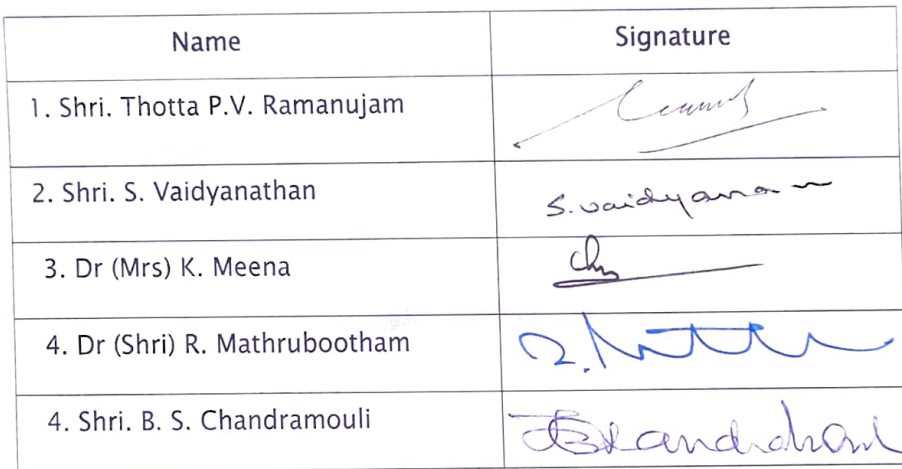 Name Signature
1. Shri. Thotta P.V. Ramanujam
2. Shri. S. Vaidyanathan S. Vaidyana
3. Dr (Mrs) K. Meena
4. Dr (Shri) R. Mathrubootham
4. Shri. B. S. Chandramouli